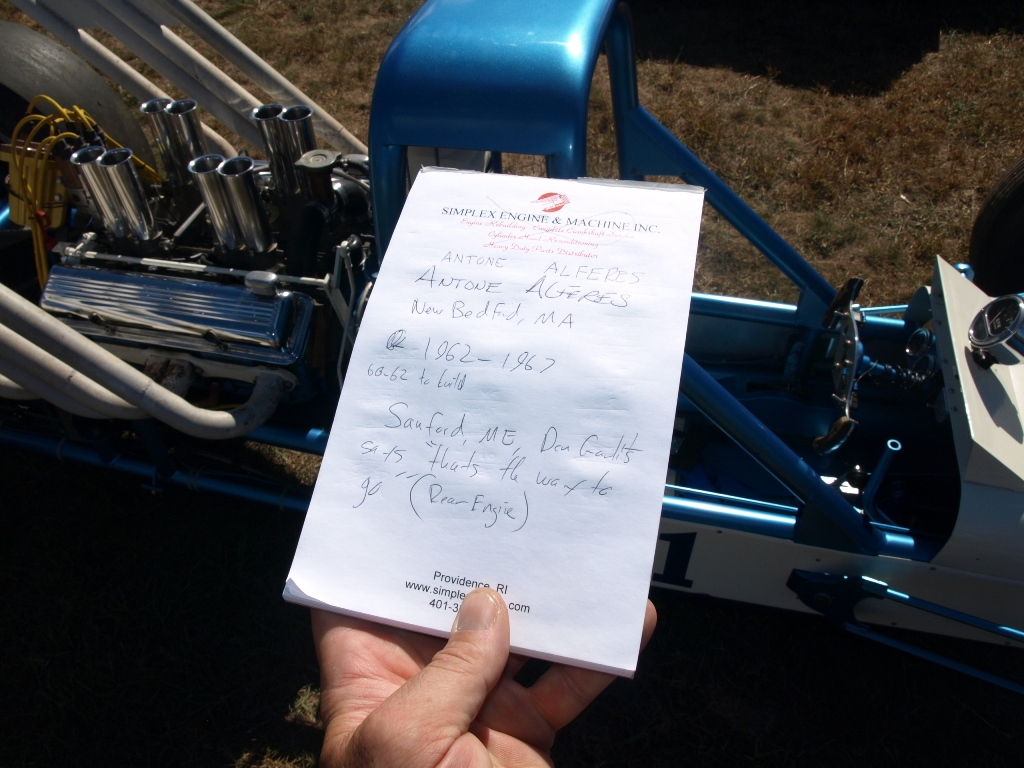 SIMPLEX ENGINE & MACHINE INC.
Engine Rebuilding Complete Crankshaft Service
Cylinder Head Reconditioning
Heavy Duty Parts Distributor
ANTONE ALFERES
ANTONE ALFERES
New Bedford, MA
1962-1967
60-62 to build
Sanford, ME, Don Garlits
says "thats the way to
go (Rear Engine)
Providence, RI
www.simple com
401-3
1